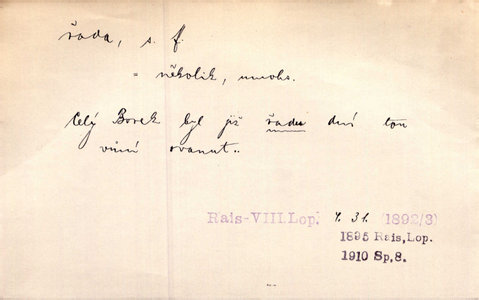 řada, s. f.
= několik, mnoho.
Celý Borek byl již řadu dní tou
vůní ovanut..
Rais-VIII.Lop. 4. 31. (1892/3)
1895 Rais,Lop.
1910 Sp,8.